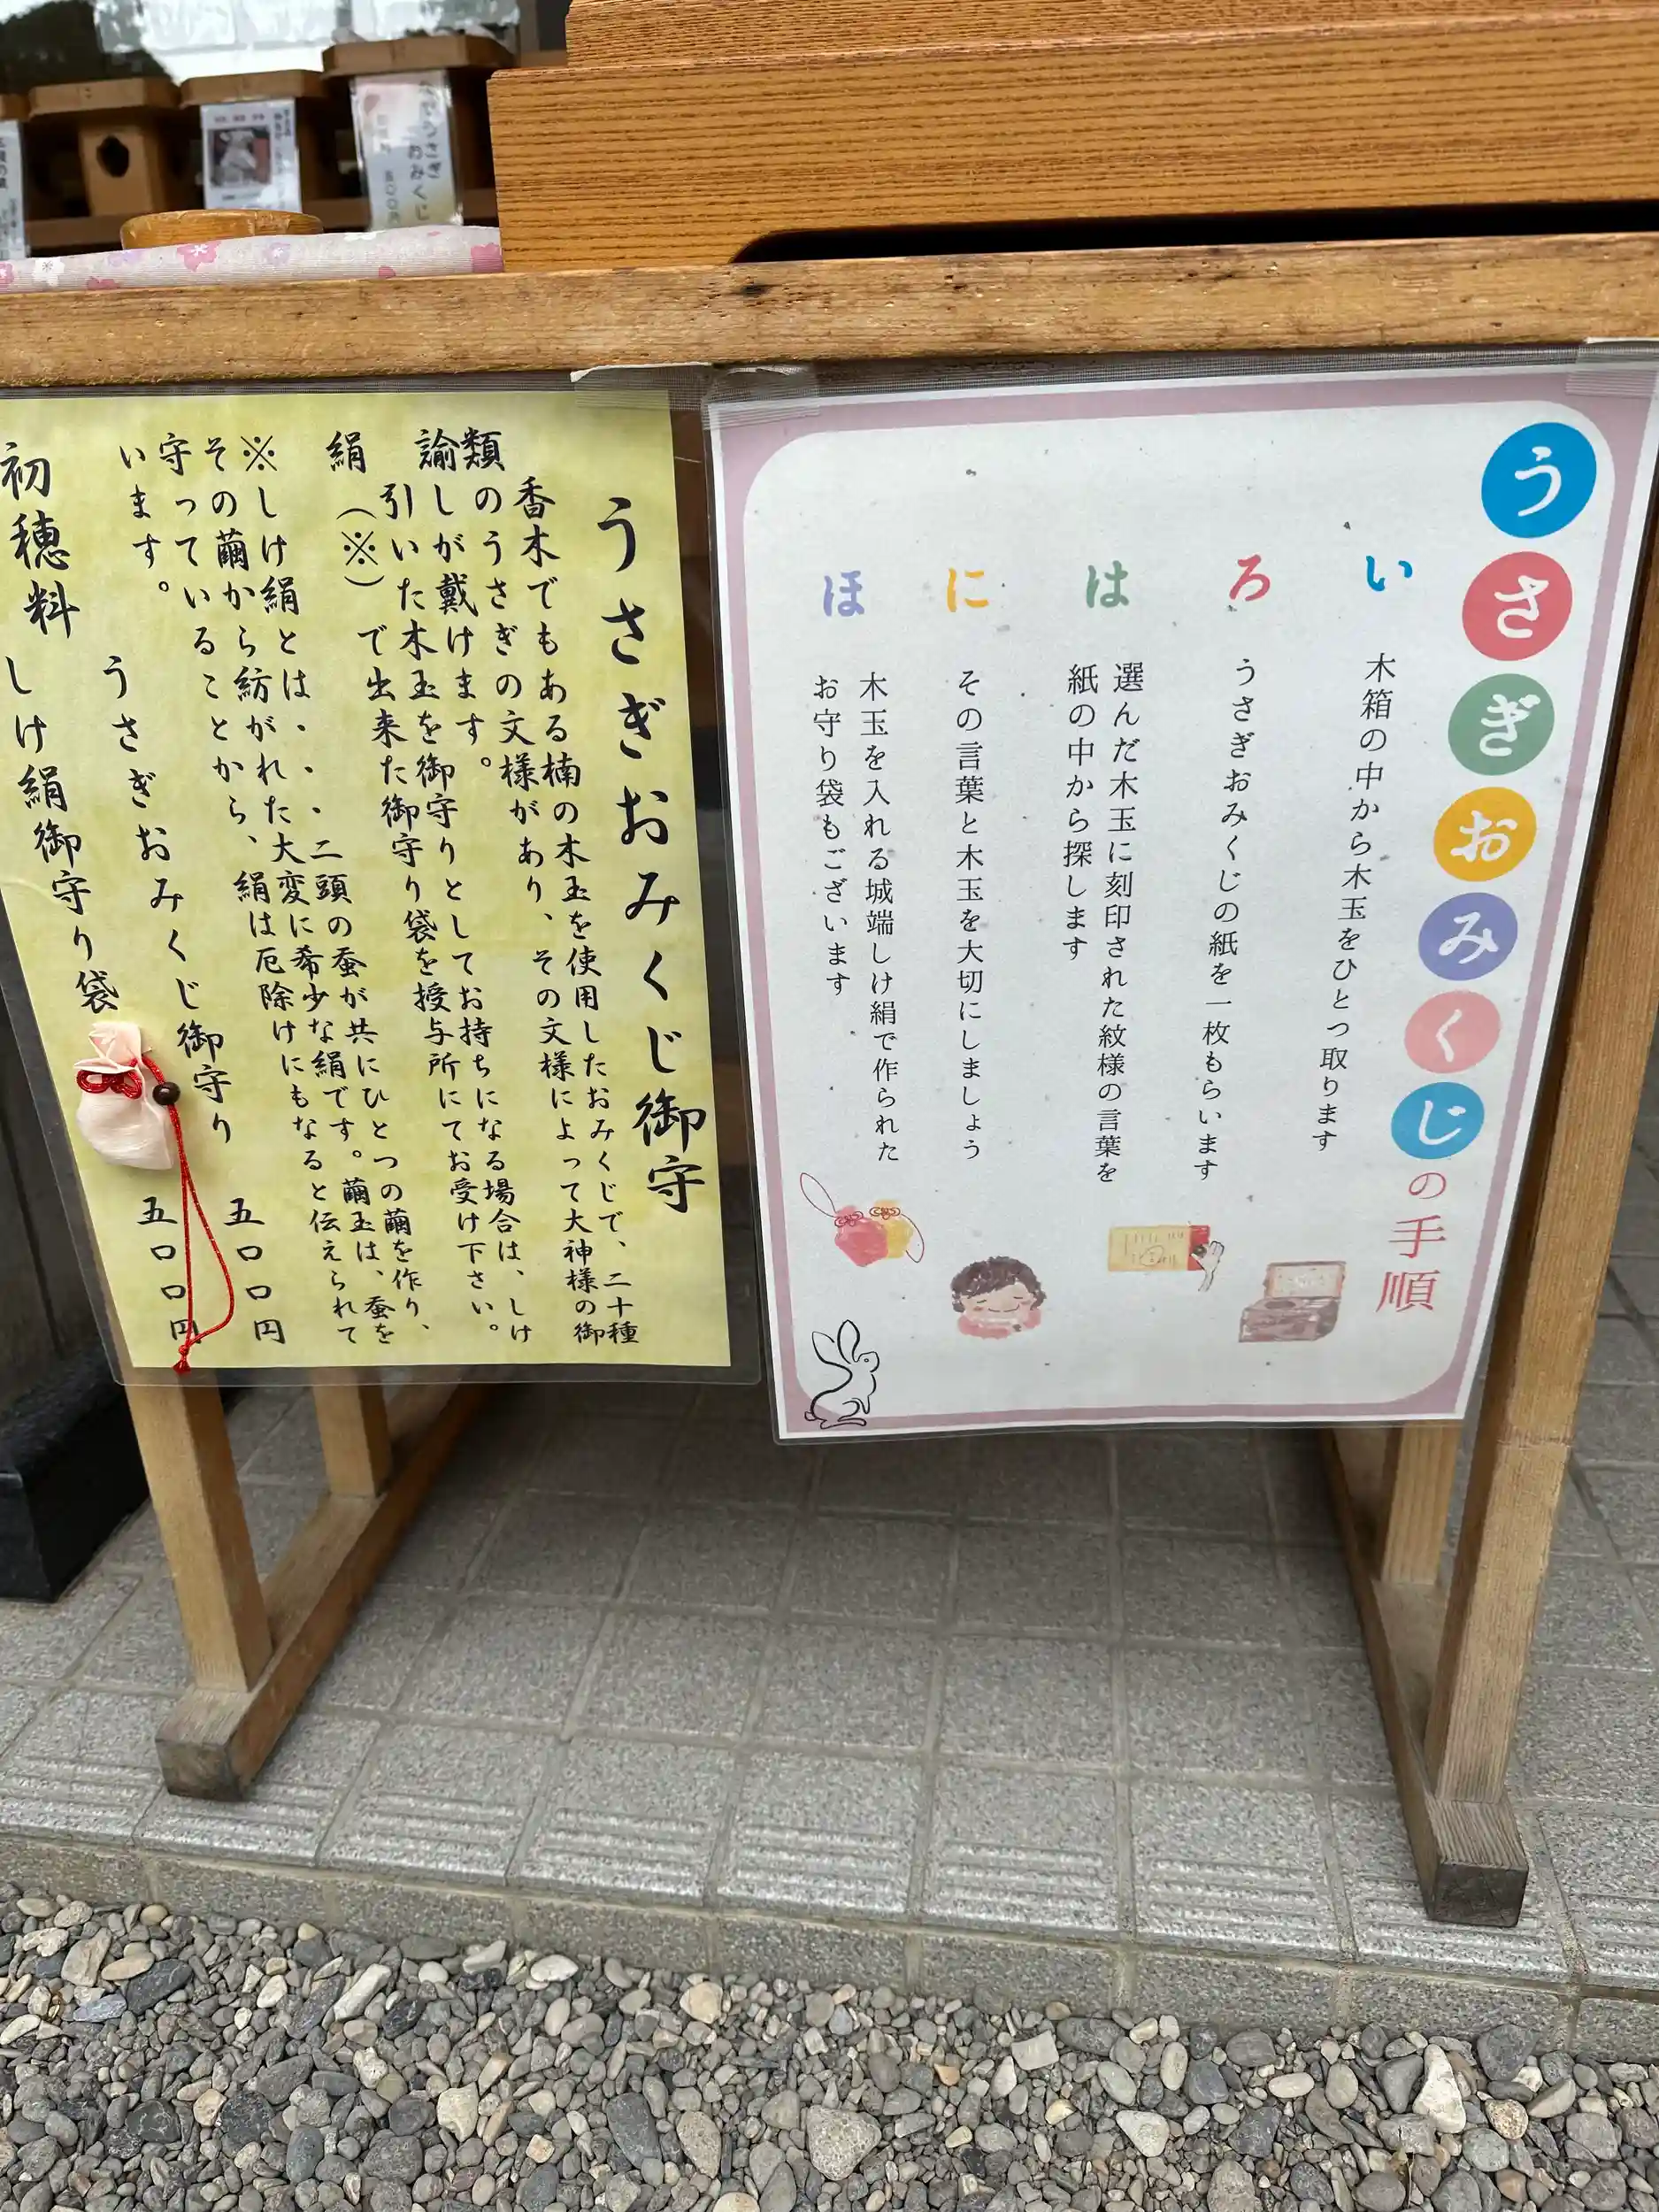 うさぎおみくじの手順
い
木箱の中から木玉をひとつ取ります
ろ
うさぎおみくじの紙を一枚もらいます
は
選んだ木玉に刻印された紋様の言葉を
紙の中から探します
に
その言葉と木玉を大切にしましょう
ほ
木玉を入れる城端しけ絹で作られた
お守り袋もございます
うさぎおみくじ御守
香木でもある楠の木玉を使用したおみくじで、二十種
類のうさぎの文様があり、その文様によって大神様の御
諭しが戴けます。
引いた木玉を御守りとしてお持ちになる場合は、しけ
絹(※)で出来た御守り袋を授与所にてお受け下さい。
※しけ絹とは・・・二頭の蚕が共にひとつの繭を作り、
その繭から紡がれた大変に希少な絹です。繭玉は、蚕を
守っていることから、絹は厄除けにもなると伝えられて
います。
うさぎおみくじ御守り 五〇〇円
初穂料 しけ絹御守り袋 五〇〇円